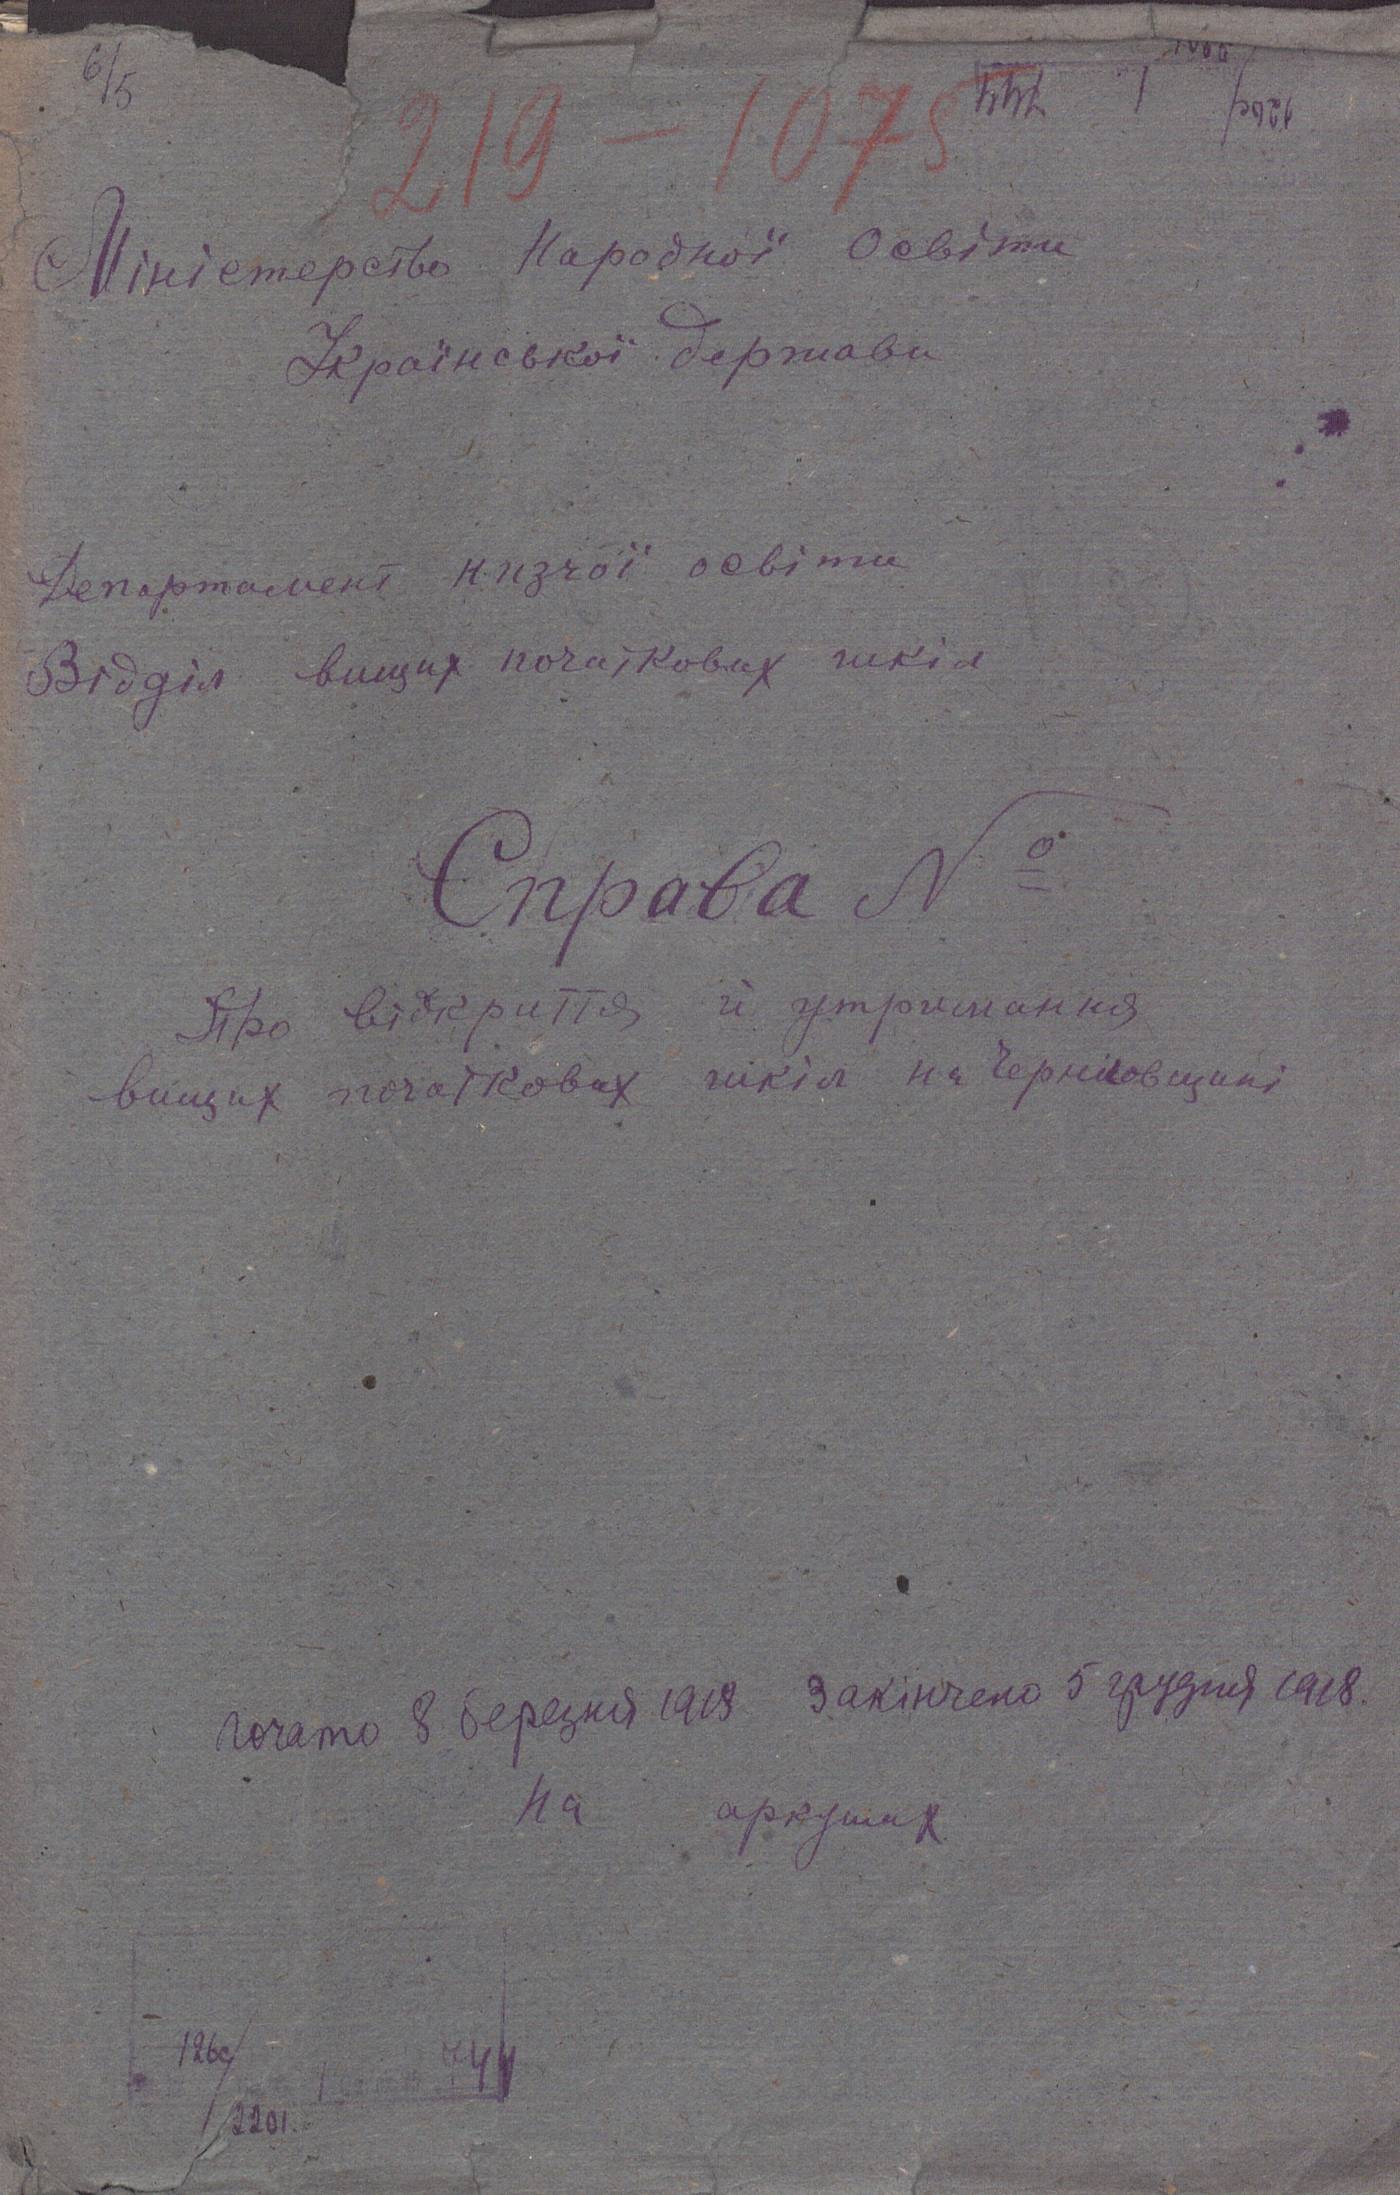 6/5
219 — 1075
744 1 126с/
Міністерство Народної Освіти
Української Держави
Департамент низчої освіти
Відділ вищих початкових шкіл
Справа №
Про відкриття й утримання
вищих початкових шкіл на Чернівовщині
Почато 8 березня 1918 Закінчено 5 грудня 1918.
На аркушах
126с/ 1 744
2201.